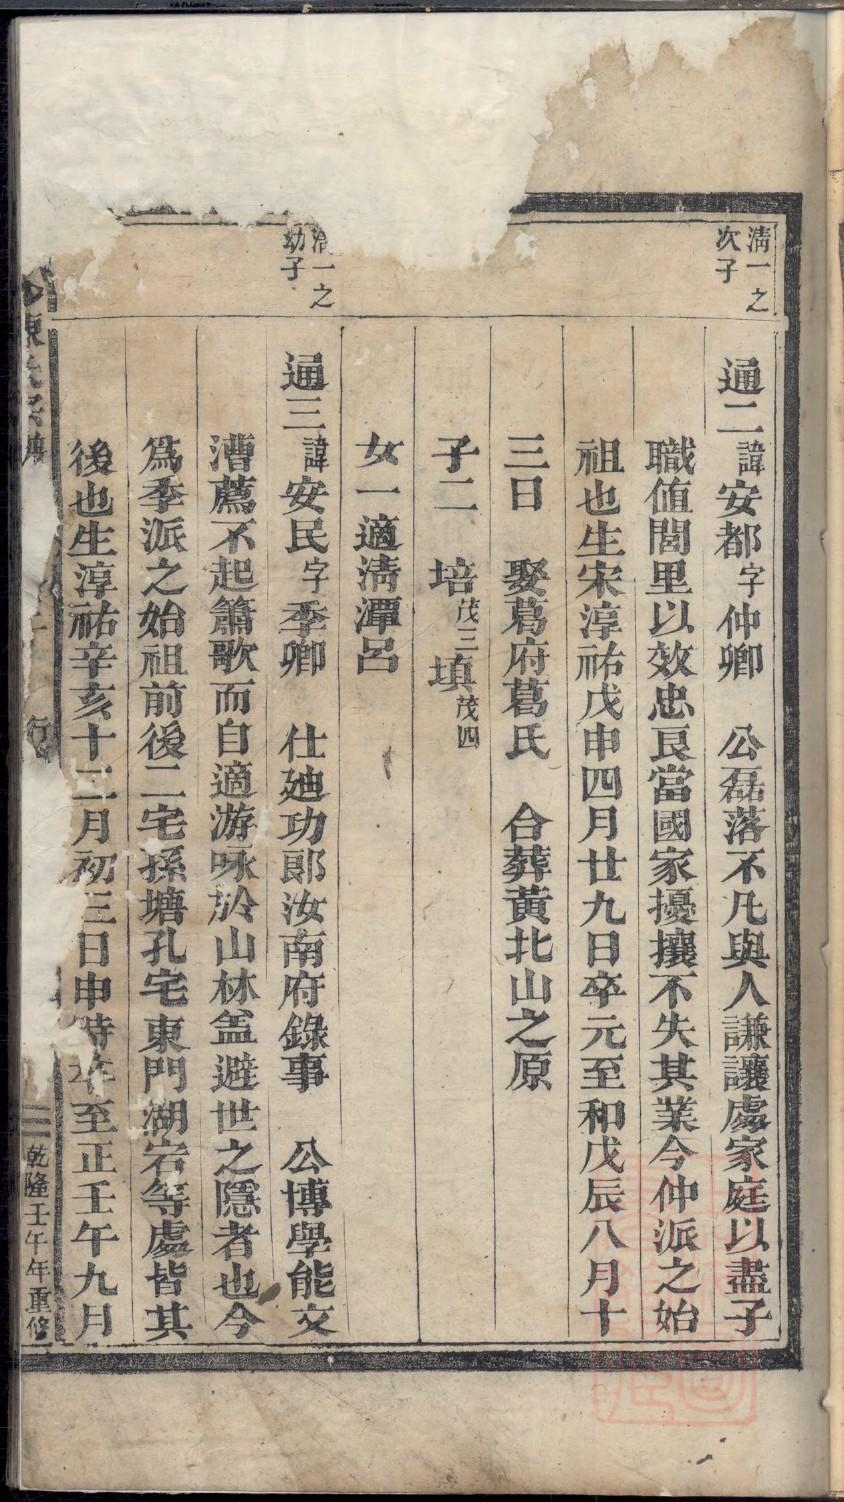 清一之
次子
通二諱安都字仲卿　公磊落不凡與人謙讓處家庭以盡子
職值閭里以效忠良當國家擾攘不失其業今仲派之始
祖也生宋淳祐戊申四月廿九日卒元至和戊辰八月十
三日　娶葛府葛氏　合葬黃北山之原
子二　培茂三填茂四
女一適清潭呂
清一之
幼子
通三諱安民字季卿　仕迪功郎汝南府錄事　公博學能文
漕薦不起簫歌而自適游咏於山林盖避世之隱者也今
爲季派之始祖前後二宅孫塘孔宅東門湖宕等處皆其
後也生淳祐辛亥十二月初三日申時卒至正壬午九月
行
乾隆壬午年重修